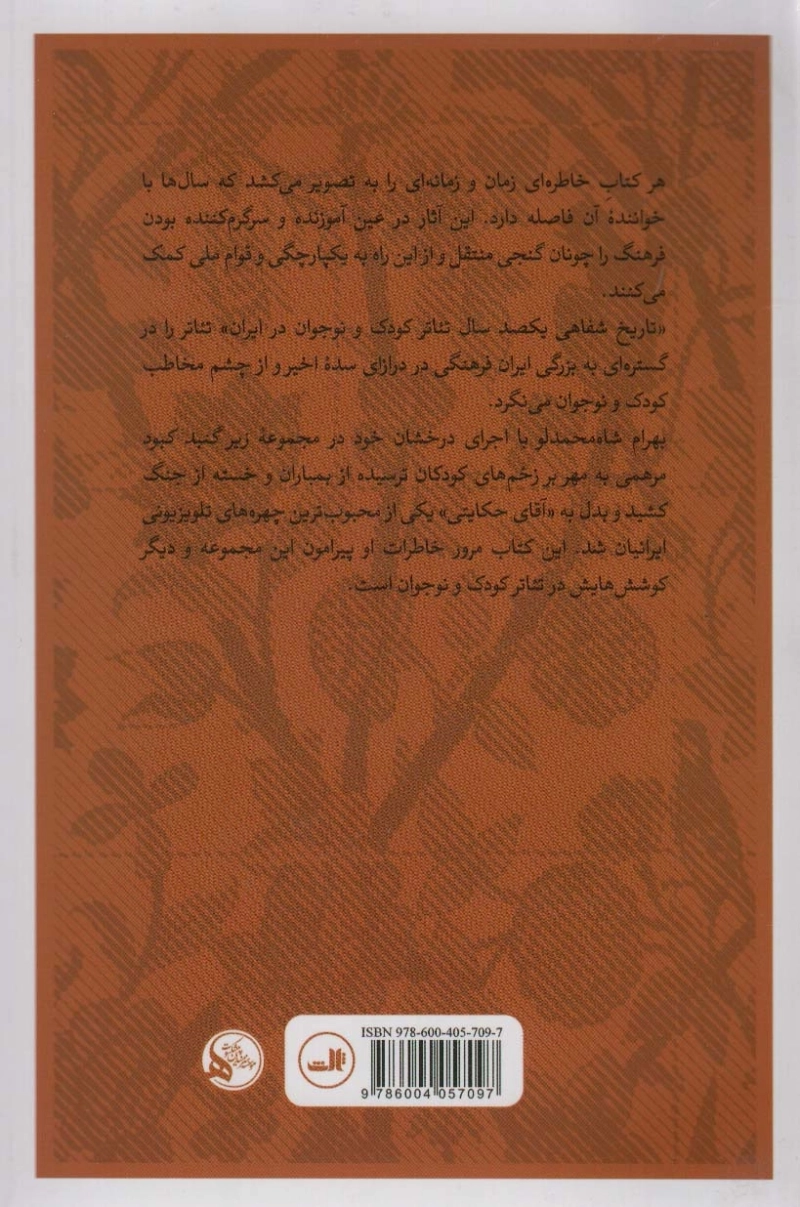 هر کتابِ خاطره‌ای زمان و زمانه‌ای را به تصویر می‌کشد که سال‌ها با
خوانندهٔ آن فاصله دارد. این آثار در عین آموزنده و سرگرم‌کننده بودن
فرهنگ را چونان گنجی منتقل و از این راه به یکپارچگی و قوام ملی کمک
می‌کنند.
«تاریخ شفاهی یکصد سال تئاتر کودک و نوجوان در ایران» تئاتر را در
گستره‌ای به بزرگی ایران فرهنگی در درازای سدهٔ اخیر و از چشم مخاطب
کودک و نوجوان می‌نگرد.
بهرام شاه‌محمدلو با اجرای درخشان خود در مجموعهٔ زیر گنبد کبود
مرهمی به مهر بر زخم‌های کودکان ترسیده از بمباران و خسته از جنگ
کشید و بدل به «آقای حکایتی» یکی از محبوب‌ترین چهره‌های تلویزیونی
ایرانیان شد. این کتاب مرور خاطرات او پیرامون این مجموعه و دیگر
کوشش‌هایش در تئاتر کودک و نوجوان است.
ISBN 978-600-405-709-7
ثالث
9 786004 057097